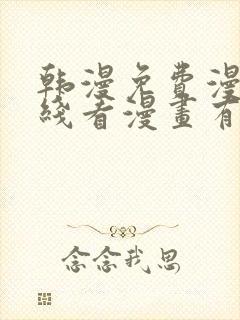 韩漫免費漫
线看漫畫有
念念我思